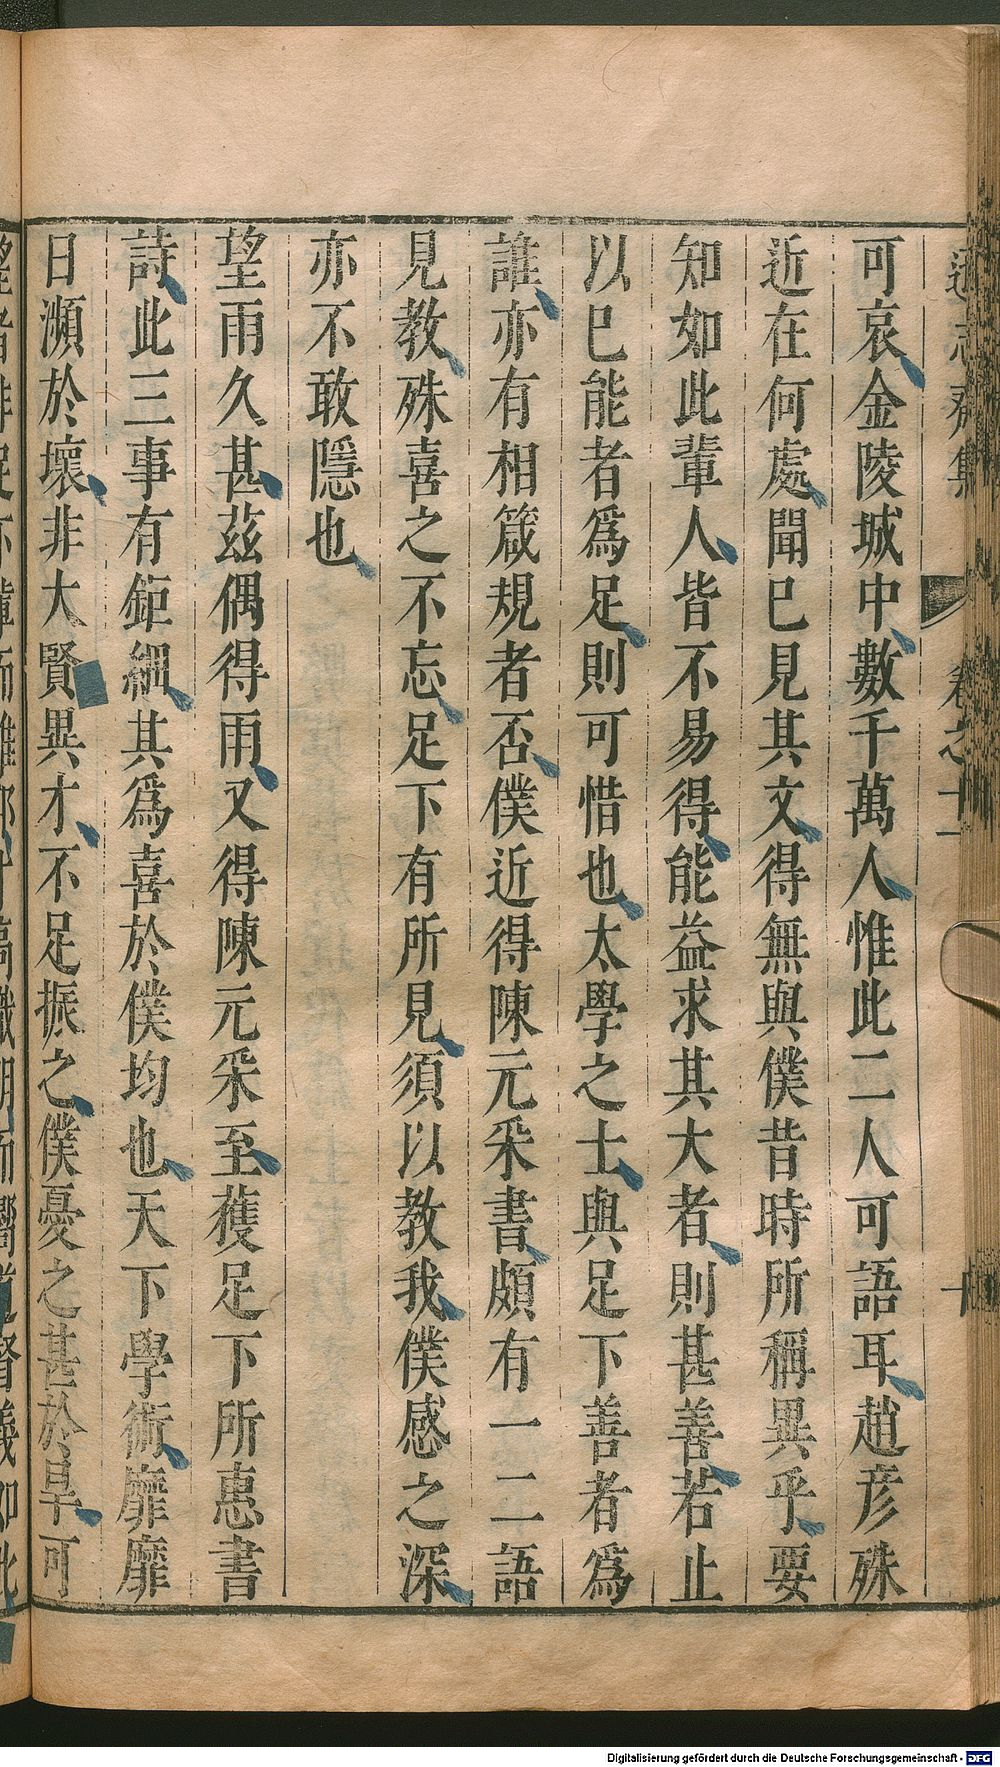 遜志齋集 卷之十一 十
可哀金陵城中數千萬人惟此二人可語耳趙彦殊
近在何處聞已見其文得無與僕昔時所稱異乎要
知如此輩人皆不易得能益求其大者則甚善若止
以已能者爲足則可惜也太學之士與足下善者爲
誰亦有相箴規者否僕近得陳元采書頗有一二語
見教殊喜之不忘足下有所見須以教我僕感之深
亦不敢隱也
望雨久甚茲偶得雨又得陳元采至蒦足下所惠書
詩此三事有鉅細其爲喜於僕均也天下學術靡靡
日瀕於壞非大賢異才不足振之僕憂之甚於旱可
Digitalisierung gefördert durch die Deutsche Forschungsgemeinschaft - DFG